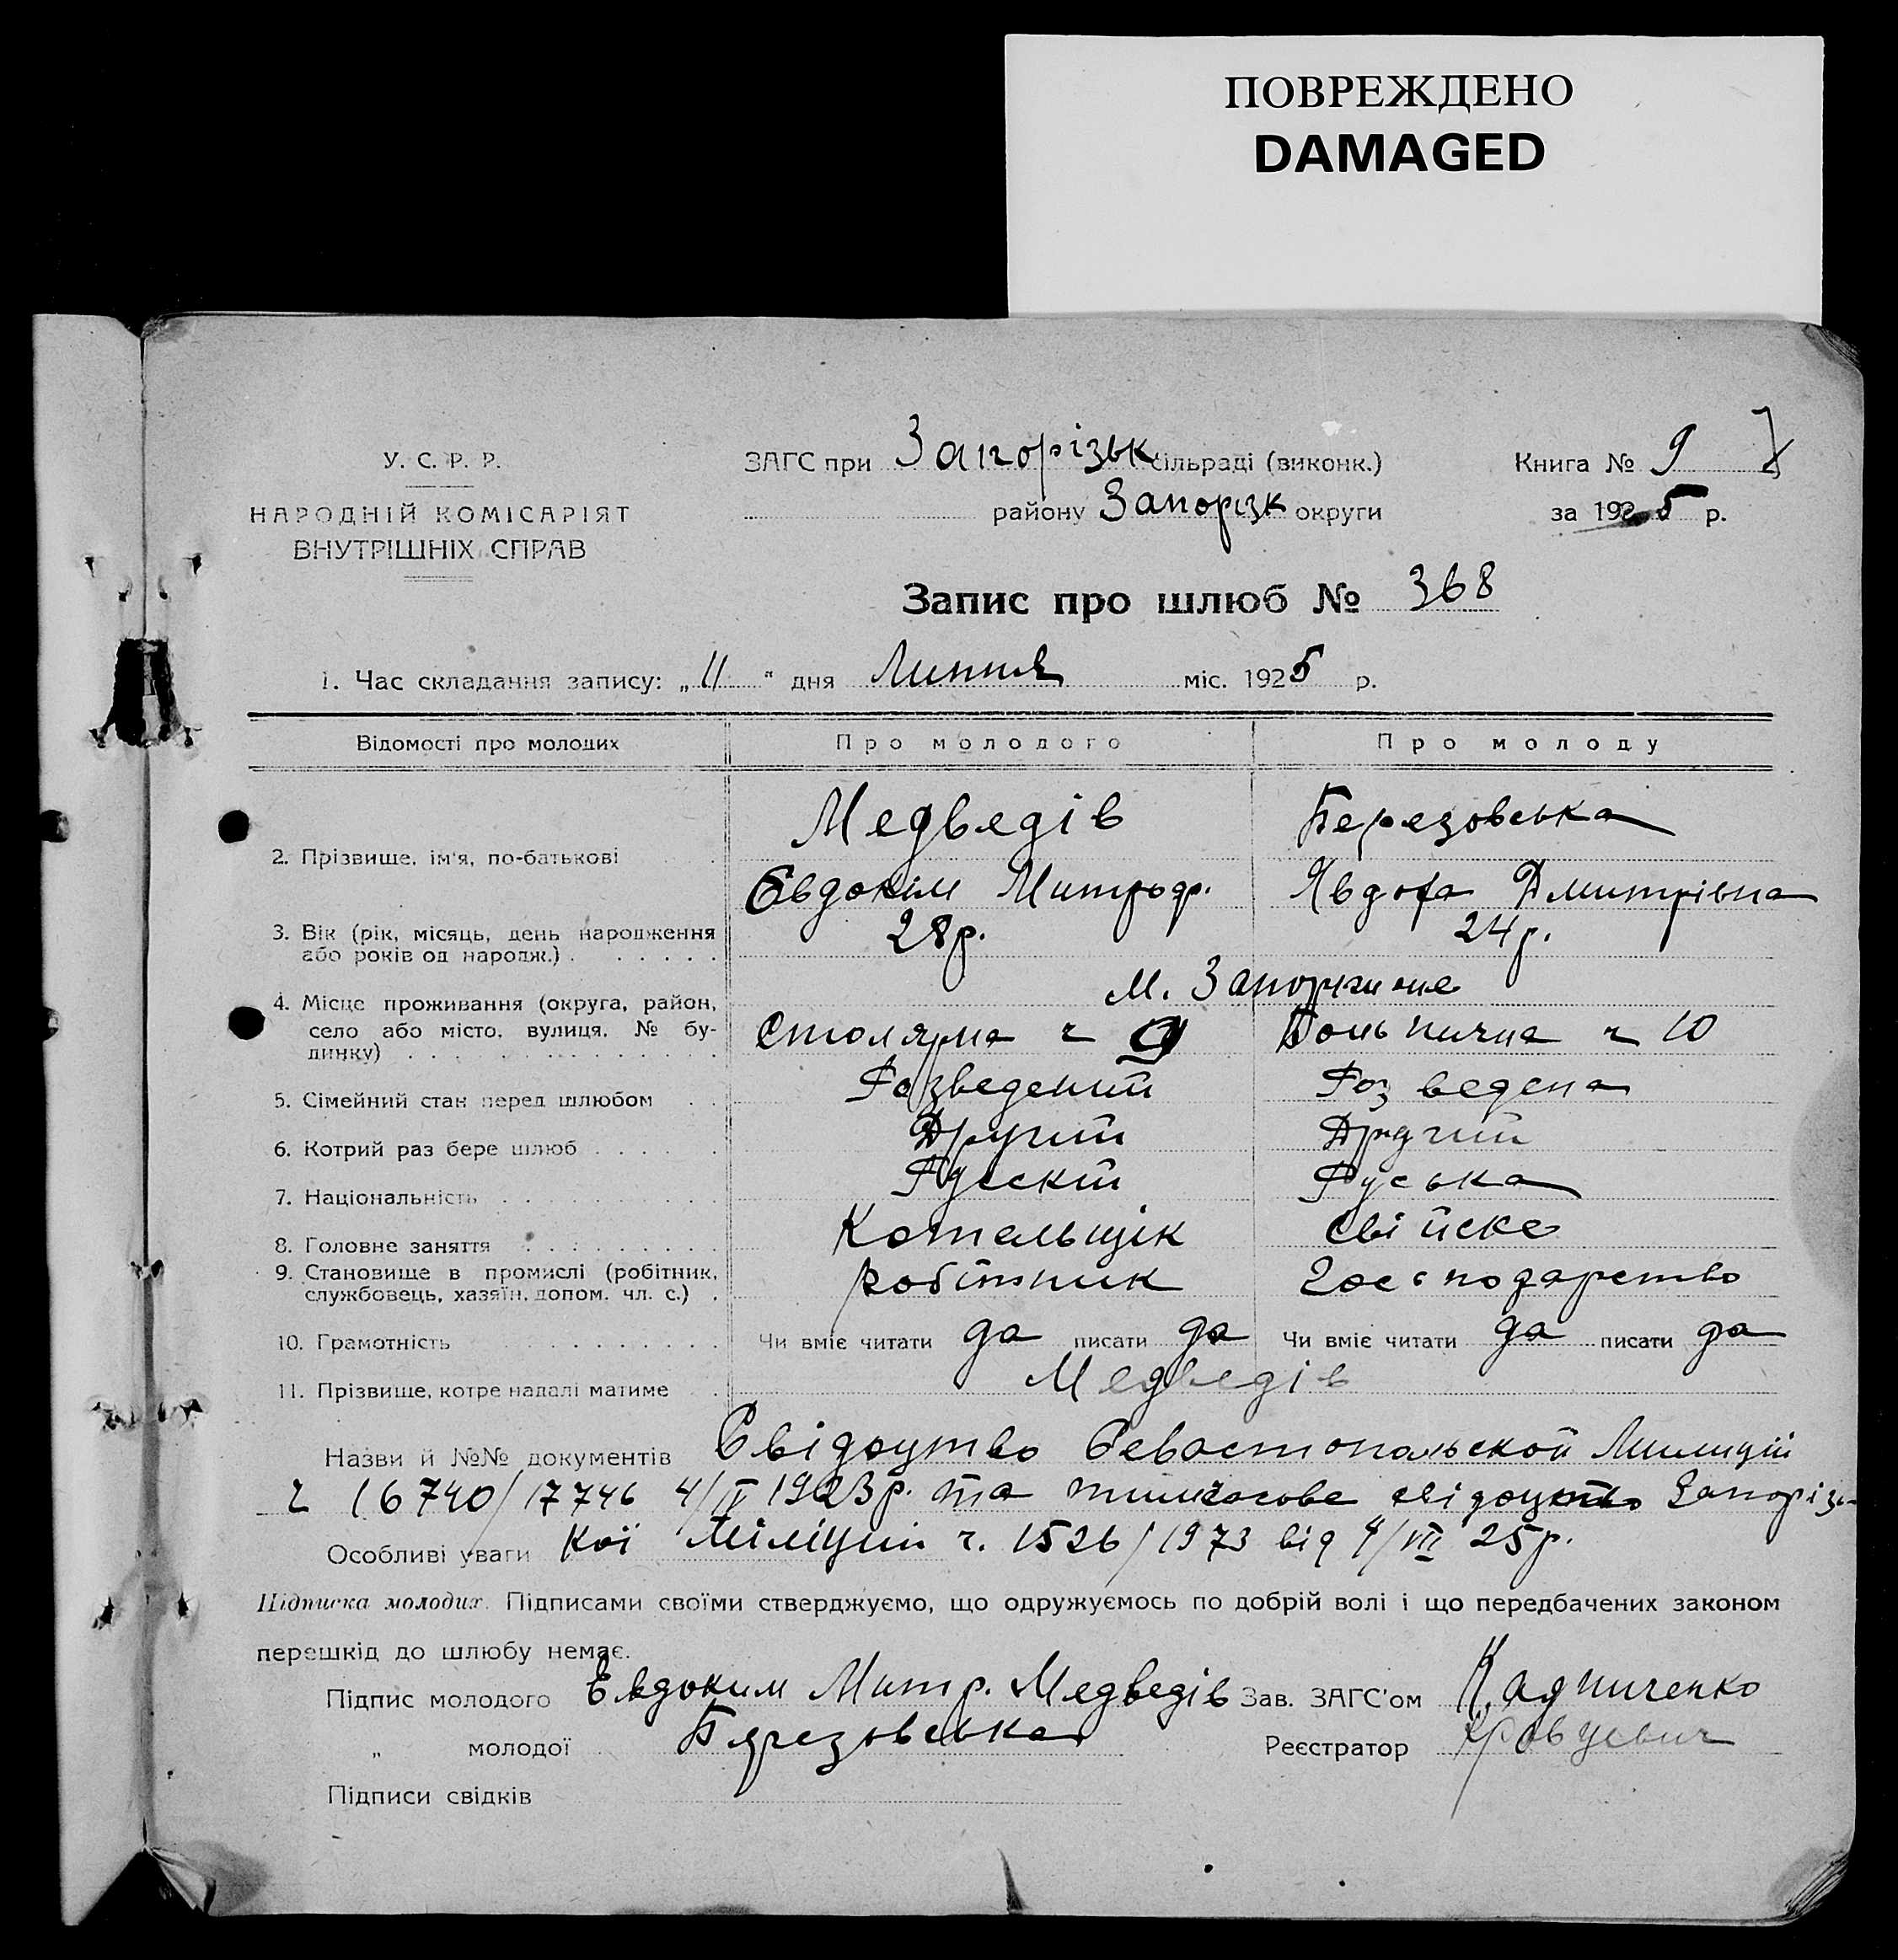 ПОВРЕЖДЕНО
DAMAGED
У. С. Р. Р.
НАРОДНІЙ КОМІСАРІЯТ
ВНУТРІШНІХ СПРАВ
ЗАГС при Запорізьк сільраді (виконк.)
району Запорізк округи
Книга № 9
за 1925 р.
Запис про шлюб № 368
1. Час складання запису: „ 11 “ дня Липня міс. 1925 р.
Відомості про молодих Про молодого Про молоду
Медведів Березовська
2. Прізвище, ім'я, по-батькові
Євдокім Митроф. Явдоха Дмитрівна
3. Вік (рік, місяць, день народження 28р. 24р.
або років од народж.)
м. Запоріжже
4. Місце проживання (округа, район,
село або місто, вулиця, № бу- Столярна ч 9 ч 10
динку)
5. Сімейний стан перед шлюбом Розведений Розведена
6. Котрий раз бере шлюб Другий Другий
7. Національність Руський Руська
8. Головне заняття Котельщік свійске
9. Становище в промислі (робітник, робітник господарство
службовець, хазяїн, допом. чл. с.)
10. Грамотність Чи вміє читати да писати да Чи вміє читати да писати да
11. Прізвище, котре надалі матиме Медведів
Назви й №№ документів Свідоцтво Севастопольской Милиций
ч 16740/17746 4/IV 1923р. та тимчасове свідоцтво Запорізь-
Особливі уваги кої Міліции ч. 1526/1973 від 4/VII 25р.
Підписка молодих. Підписами своїми стверджуємо, що одружуємось по добрій волі і що передбачених законом
перешкід до шлюбу немає.
Підпис молодого Евдоким Митр. Медведів Зав. ЗАГС'ом
„ молодої Березовська Реєстратор Кравцевич
Підписи свідків